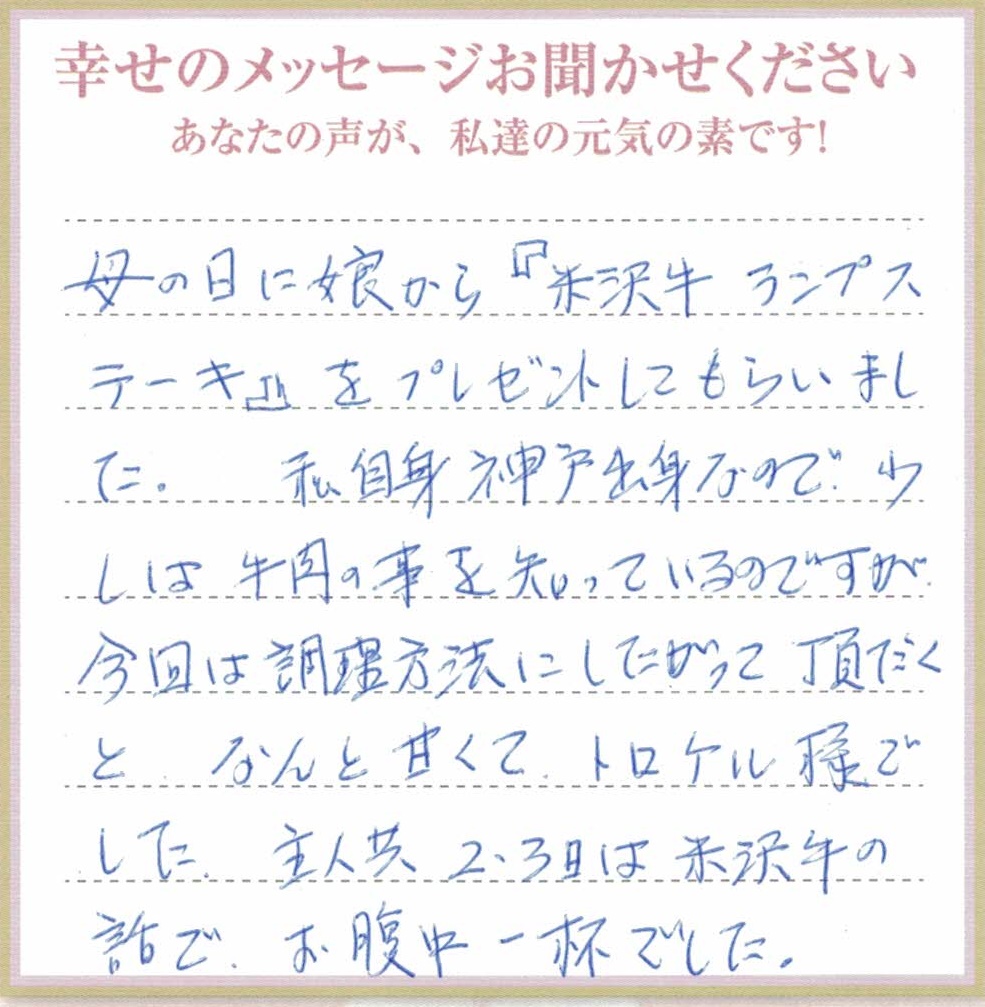 幸せのメッセージお聞かせください
あなたの声が、私達の元気の素です!
母の日に娘から『米沢牛 ランプス
テーキ』をプレゼントしてもらいまし
た。 私自身神戸出身なので、少
しは牛肉の事を知っているのですが、
今回は調理方法にしたがって頂だく
と、なんと甘くて、トロケル様で
した、主人共 2、3日は米沢牛の
話で、お腹中一杯でした。